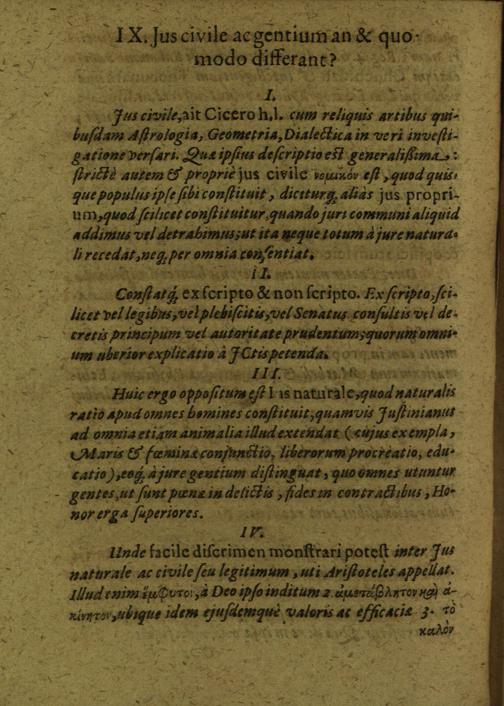 IX. Jus civile ac gentium an & quo-
modo differant?
I.
Jus civile, ait Cicero h.l. cum reliquis artibus qui-
busdam Astrologia, Geometria, Dialectica in veri investi-
gatione versari. Quæ ipsius descriptio est generalissima,:
strictè autem & propriè jus civile νομικόν est, quod quis-
que populus ipse sibi constituit, diciturq́; aliàs jus propri-
um, quod scilicet constituitur, quando juri communi aliquid
addimus vel detrahimus; ut ita neque totum à jure natura-
li recedat, neq́; per omnia consentiat.
II.
Constatq́; ex scripto & non scripto. Ex scripto, sci-
licet vel legibus, vel plebiscitis, vel Senatus consultis vel de-
cretis principum vel autoritate prudentum; quorum omni-
um uberior explicatio à JCtis petenda.
III.
Huic ergo oppositum est Ius naturale, quod naturalis
ratio apud omnes homines constituit, quamvis Justinianus
ad omnia etiam animalia illud extendat (cujus exempla,
Maris & fœminæ conjunctio, liberorum procreatio, edu-
catio), eoq́; à jure gentium distinguat, quo omnes utuntur
gentes, ut sunt pœnæ in delictis, fides in contractibus, Ho-
nor erga superiores.
IV.
Unde facile discrimen monstrari potest inter Jus
naturale ac civile seu legitimum, uti Aristoteles appellat.
Illud enim ἔμφυτον, à Deo ipso inditum 2. ἀμετάβλητον καὶ ἀ-
κίνητον, ubique idem ejusdemquè valoris ac efficaciæ 3. τὸ
καλὸν